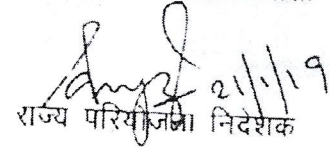 21/1/19
राज्य परियोजना निदेशक